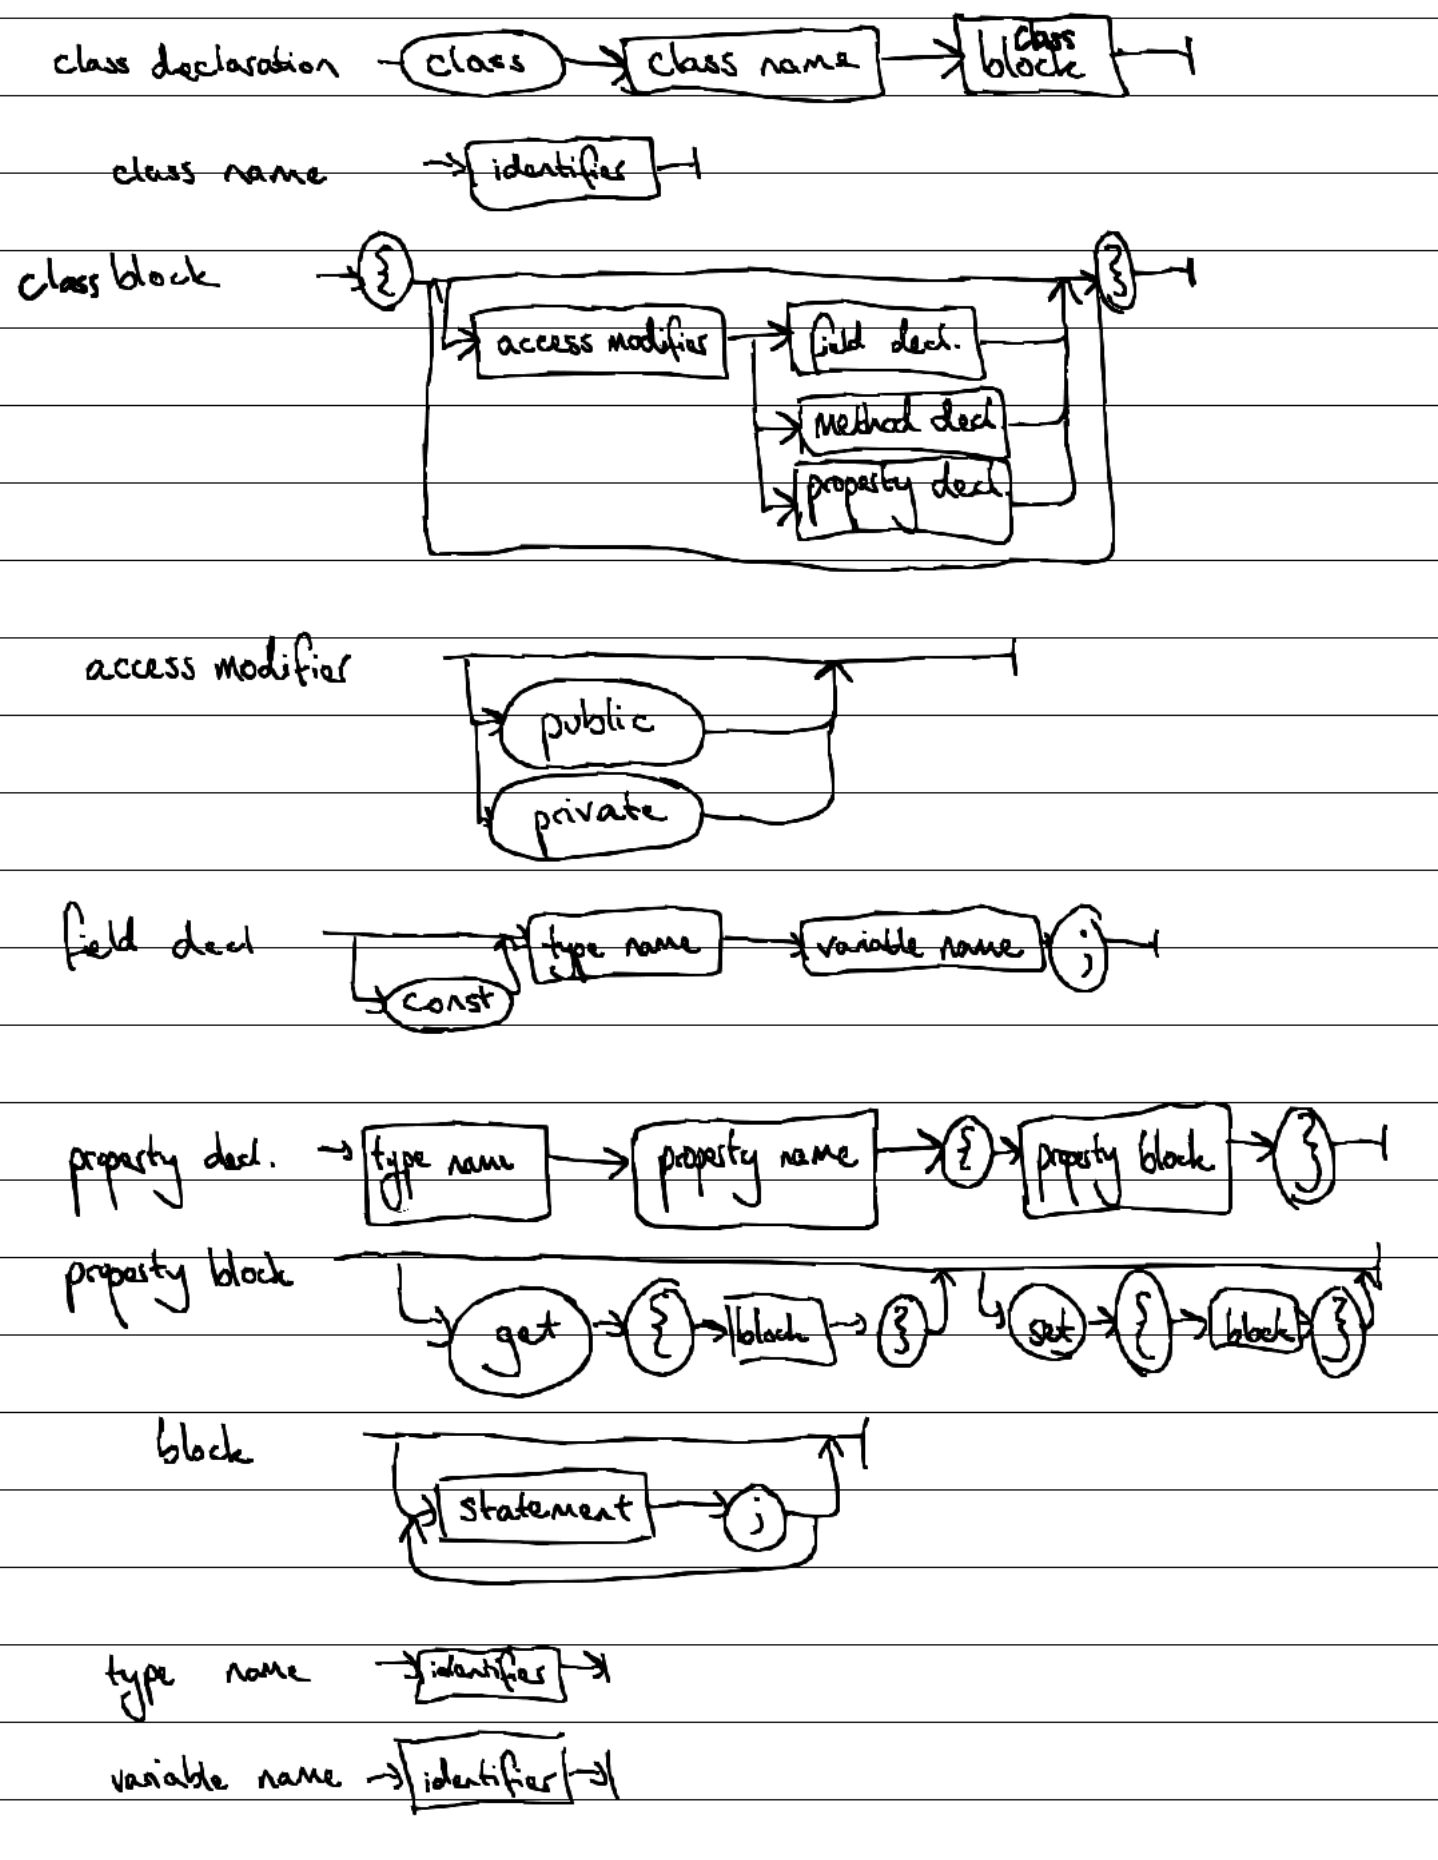 class declaration class class name class block
class name identifier
class block { }
access modifier field decl.
method decl.
property decl.
access modifier
public
private
field decl type name variable name ;
const
property decl. type name property name { property block }
property block
get { block } set { block }
block
statement ;
type name identifier
variable name identifier